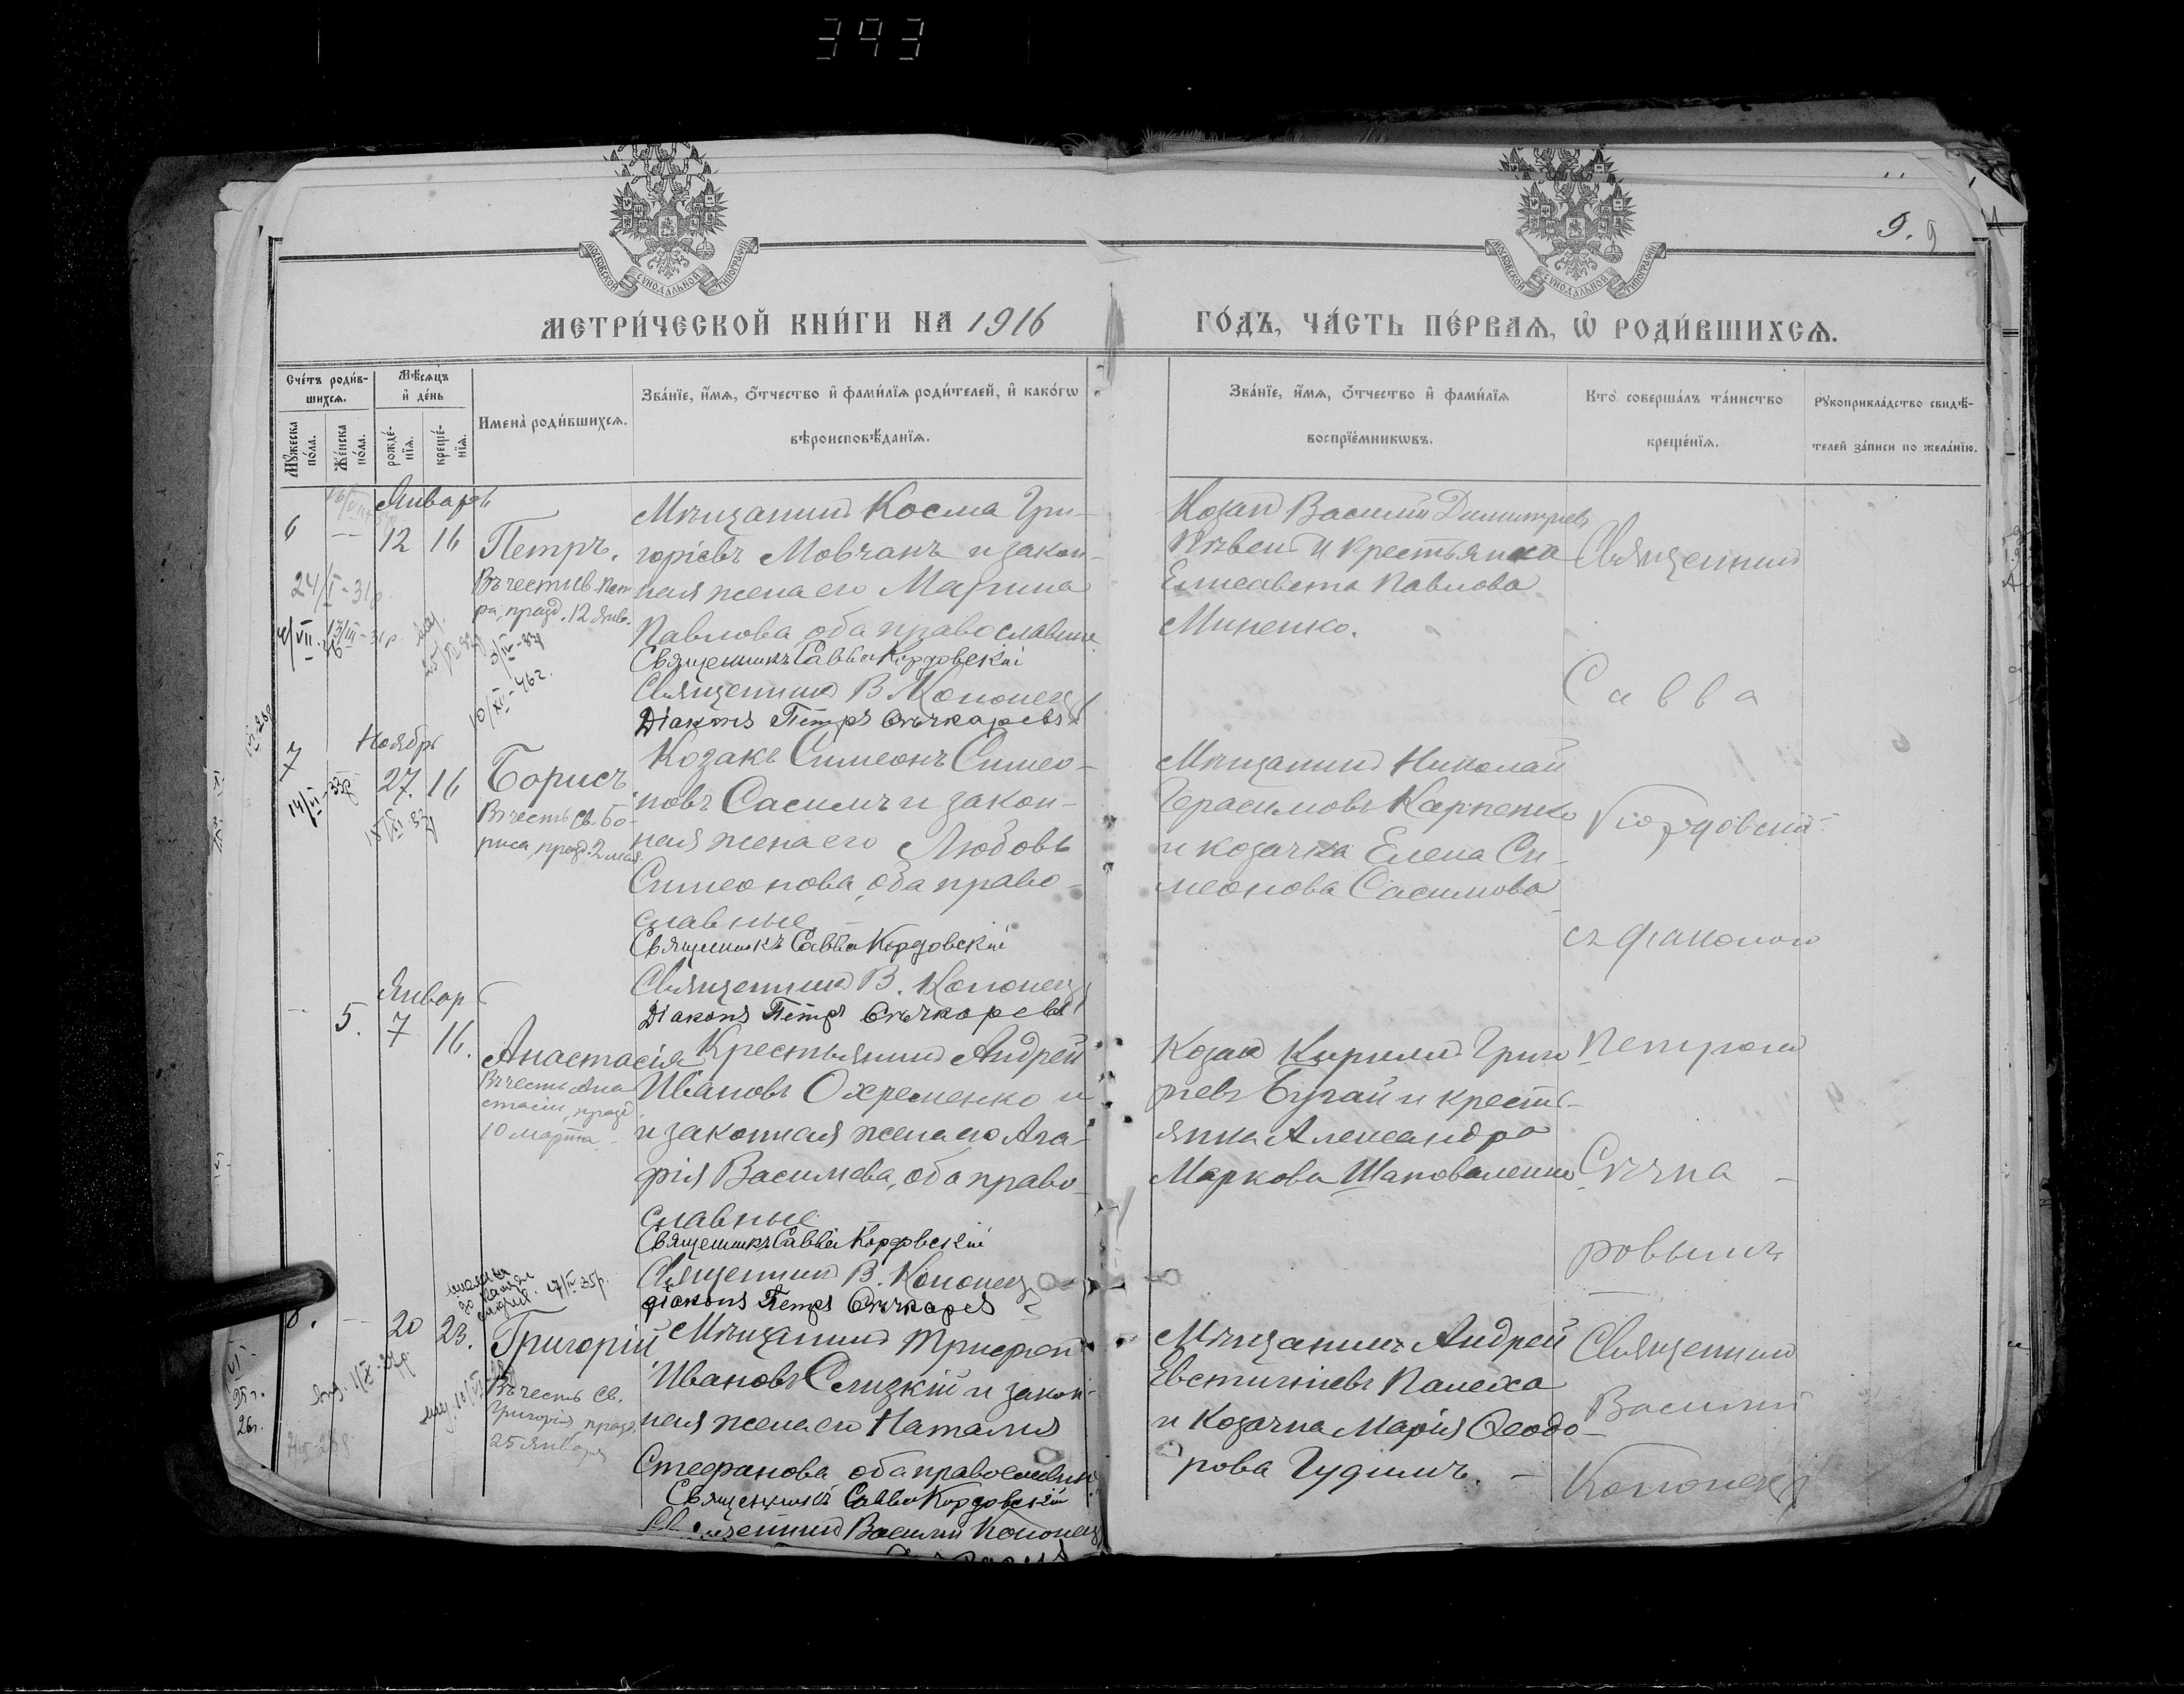 393
9. 9
МОСКОВСКОЙ СУНОДАЛЬНОЙ ТИПОГРАФІИ
МОСКОВСКОЙ СУНОДАЛЬНОЙ ТИПОГРАФІИ
МЕТРИ́ЧЕСКОЙ КНИ́ГИ НА 1916
ГО́ДЪ, ЧА́СТЬ ПЕ́РВАѦ, Ѡ҆ РОДИ́ВШИХСѦ.
Сче́тъ роди́в-
шихсѧ.
Мꙋ́жеска по́ла.
Же́нска по́ла.
Мѣ́сѧцъ
и҆ де́нь
рожде́-
нїѧ.
креще́-
нїѧ.
И҆мена̀ роди́вшихсѧ.
Зва́нїе, и҆́мѧ, ѻ҆́тчество и҆ фами́лїѧ роди́телей, и҆ како́гѡ
вѣроисповѣ́данїѧ.
Зва́нїе, и҆́мѧ, ѻ҆́тчество и҆ фами́лїѧ
воспрїе́мникѡвъ.
Кто̀ соверша́лъ та́инство
креще́нїѧ.
Рꙋкоприкла́дство свидѣ́-
телей за́писи по жела́нїю.
Январь
6 — 12 16
Петръ.
Въ честь св. Пет
ра, празд. 12 Янв.
24/I-31р.
3/IV-
10/XI-46г.
Мѣщанинъ Косма Гри-
горіевъ Мовчанъ и закон-
ная жена его Марина
Павлова оба православные
Священникъ Савва Кордовскій
Священникъ В. Кононец
Діаконъ Петръ Сѣчкаревъ
Козакъ Василій Димитріевъ
и крестьянка
Елисавета Павлова
Миненко.
Священникъ
Савва
Кордовскій
съ діакономъ
Петромъ
Сѣчка-
ровымъ
Ноябрь
7 27. 16
Борисъ
Въ честь св. Бо-
риса, празд. 2 мая.
Козакъ Симеонъ Симео-
новъ Сасимъ и закон-
ная жена его Любовь
Симеонова, оба право-
славные
Священникъ Савва Кордовскій
Священникъ В. Кононец
Діаконъ Петръ Сѣчкаревъ
Мѣщанинъ Николай
Герасимовъ Карпенко
и козачка Елена Си-
меонова Сасимова
Январь
— 5. 7 16.
Анастасія
Въ честь Ана
стасіи, празд
10 марта
Крестьянинъ Андрей
Ивановъ Охременко и
и законная жена его Ага-
фія Васильева, оба право-
славные
Священникъ Савва Кордовскій
Священникъ В. Кононец
діаконъ Петръ Сѣчкарев
Козакъ Кирилъ Григо
ріевъ Бугай и кресть-
янка Александра
Маркова Шаповаленко
17/IV 35р.
8. — 20 23.
Григорій
Въ честь св.
Григорія, празд.
25 января
Мѣщанинъ Трифонъ
Ивановъ Слизкій и закон-
ная жена его Наталія
Стефанова оба православные
Священникъ Савва Кордовскій
Священникъ Василій Кононец
Мѣщанинъ Андрей
Евстигніевъ Палеха
и Козачка Марія Ѳеодо-
рова Гудимъ. —
Священникъ
Василій
Кононец